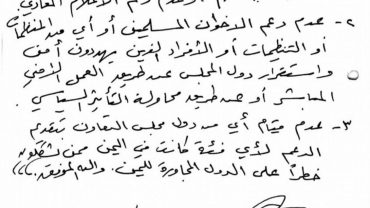 الإعلام المعادي.
٢- عدم دعم الاخوان المسلمين أو أي من المنظمات
أو التنظيمات أو الأفراد الذين يهددون أمن
واستقرار دول المجلس عن طريق العمل الأمني
المباشر أو عن طريق محاولة التأثير السياسي.
٣- عدم قيام أي من دول مجلس التعاون بتقديم
الدعم لأي فئة كانت في اليمن ممن يشكلون
خطراً على الدول المجاورة لليمن. والله الموفق،،،